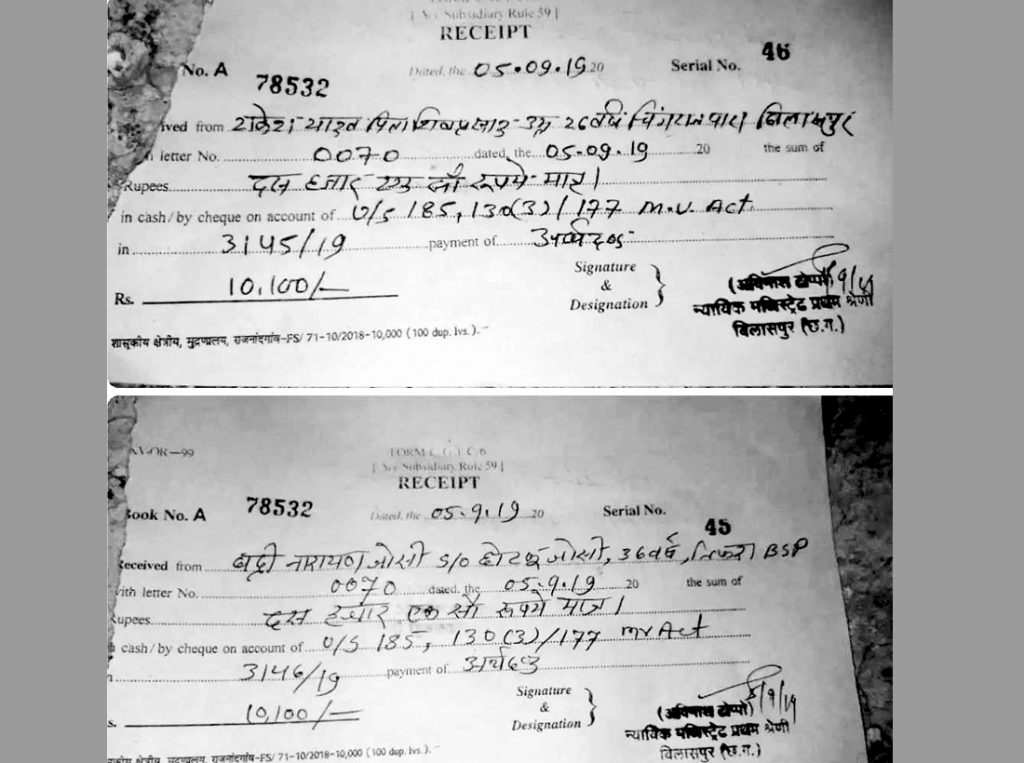 [ See Subsidiary Rule 59 ]
RECEIPT
No. A 78532 Dated, the 05.09.19 20 Serial No. 46
ived from राकेश यादव पिता शिवप्रसाद उम्र 26 वर्ष चिंगराजपारा बिलासपुर
letter No. 0070 dated, the 05.09.19 20 the sum of
Rupees दस हजार एक सौ रूपये मात्र।
in cash/by cheque on account of U/S 185, 130(3)/177 M.V. Act
in 3145/19 payment of अर्थदण्ड
Rs. 10,100/-
Signature
&
Designation
(अविनाश टोप्पो)
न्यायिक मजिस्ट्रेट प्रथम श्रेणी
बिलासपुर (छ.ग.)
शासकीय क्षेत्रीय, मुद्रणालय, राजनांदगांव-FS/ 71-10/2018-10,000 (100 dup. lvs.).
OR-99
FORM C.G.T.C.6
[ See Subsidiary Rule 59 ]
RECEIPT
Book No. A 78532 Dated, the 05.9.19 20 Serial No. 45
Received from बद्री नारायण जोसी S/O जोसी, 36 वर्ष, तिफरा BSP
ith letter No. 0070 dated, the 05.9.19 20 the sum of
upees दस हजार एक सौ रूपये मात्र।
cash/by cheque on account of U/S 185, 130(3)/177 mv Act
3146/19 payment of अर्थदण्ड
s. 10,100/-
Signature
&
Designation
5/9/19
(अविनाश टोप्पो)
न्यायिक मजिस्ट्रेट प्रथम श्रेणी
बिलासपुर (छ.ग.)
क्षेत्रीय, मुद्रणालय, राजनांदगांव-FS/ 71-10/2018-10,000 (100 dup. lvs.).